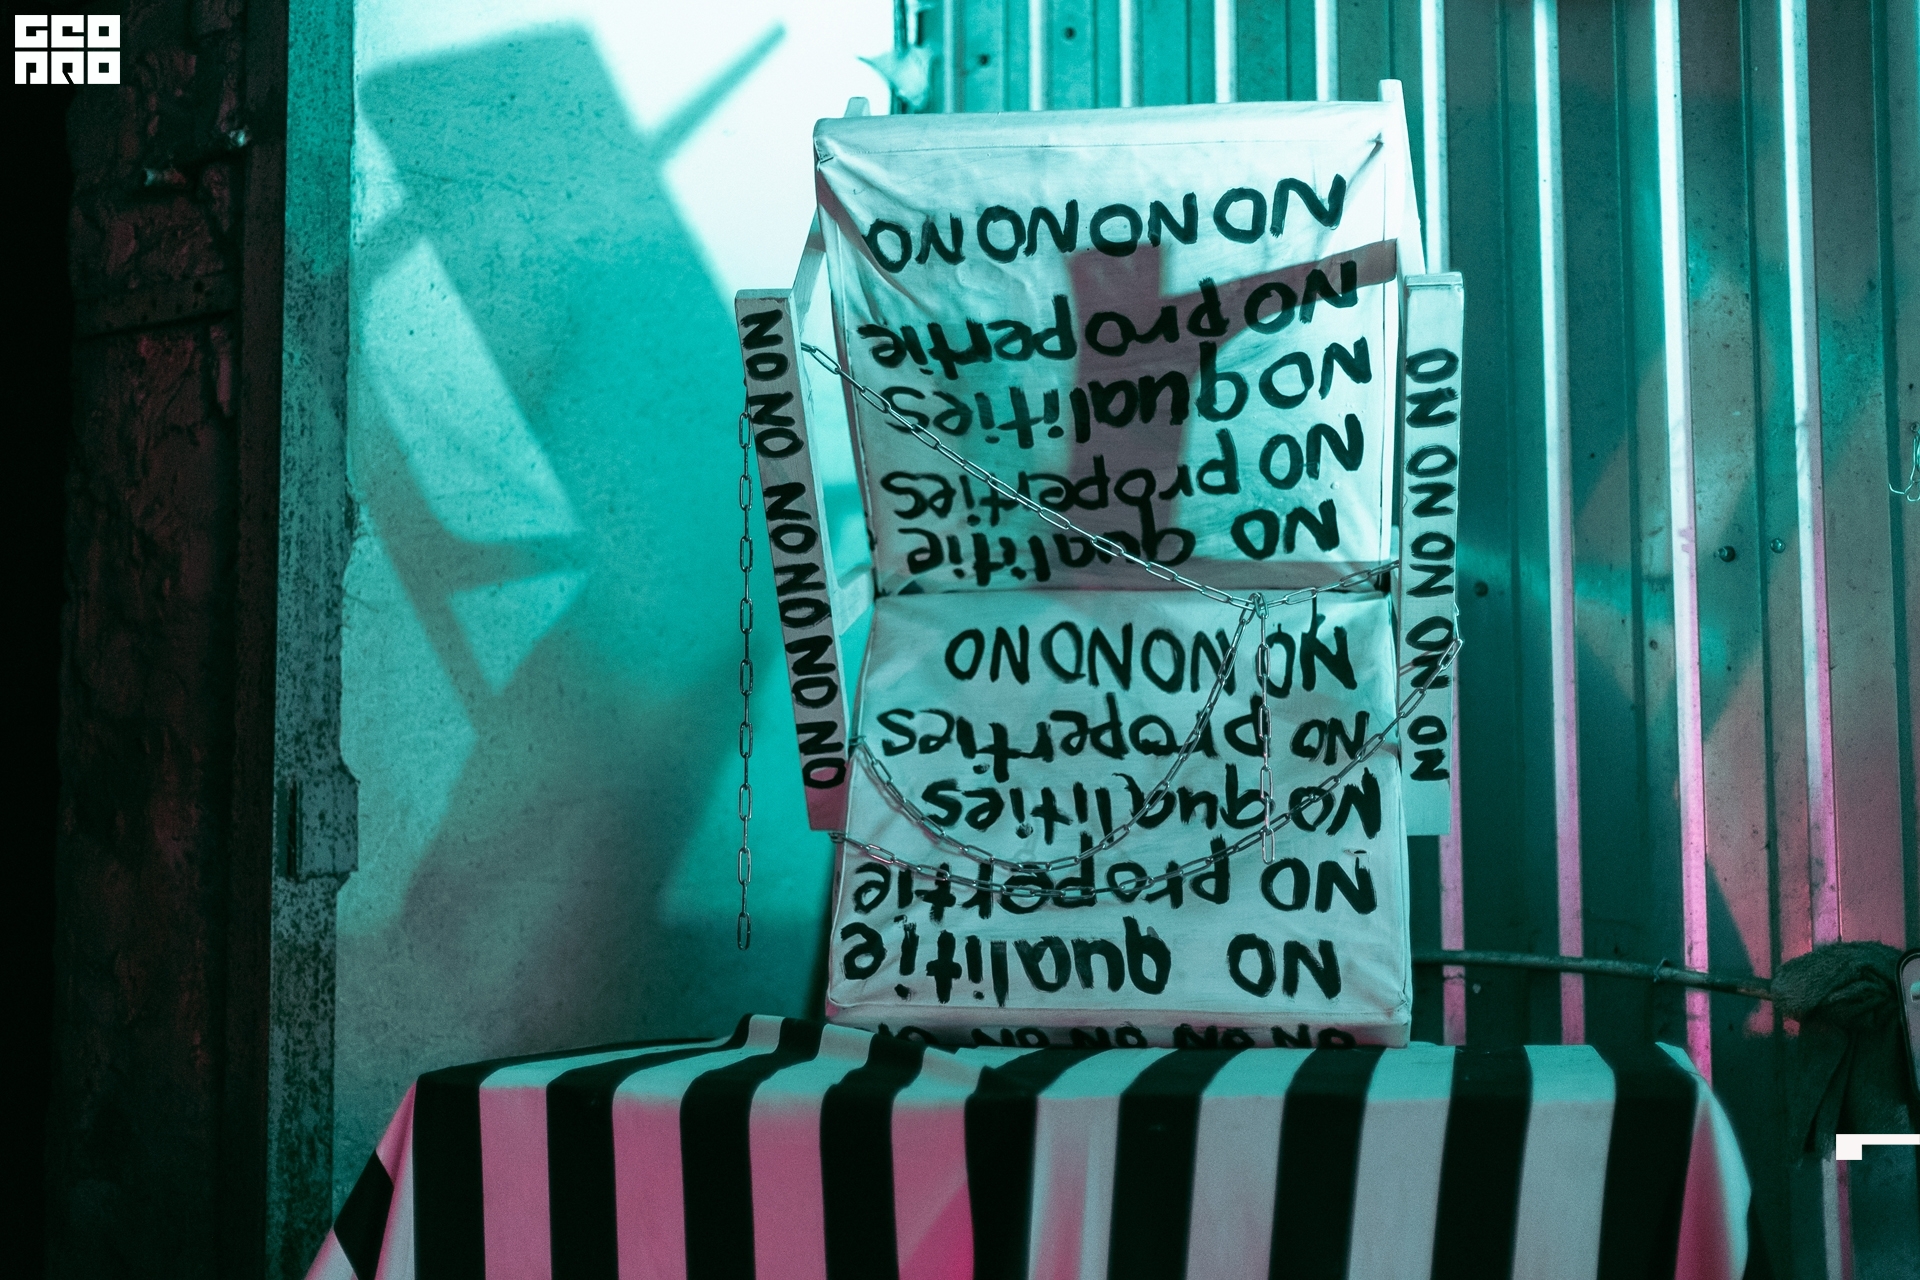 GEO
PRO
NO NO NO NO NO NO
NO qualitie
NO propertie
NO qualities
NO properties
NO NO NO NO
NO qualitie
NO properties
NO qualities
NO propertie
NO NO NO NO
NO NO NO NO NO NO NO
NO NO NO NO NO